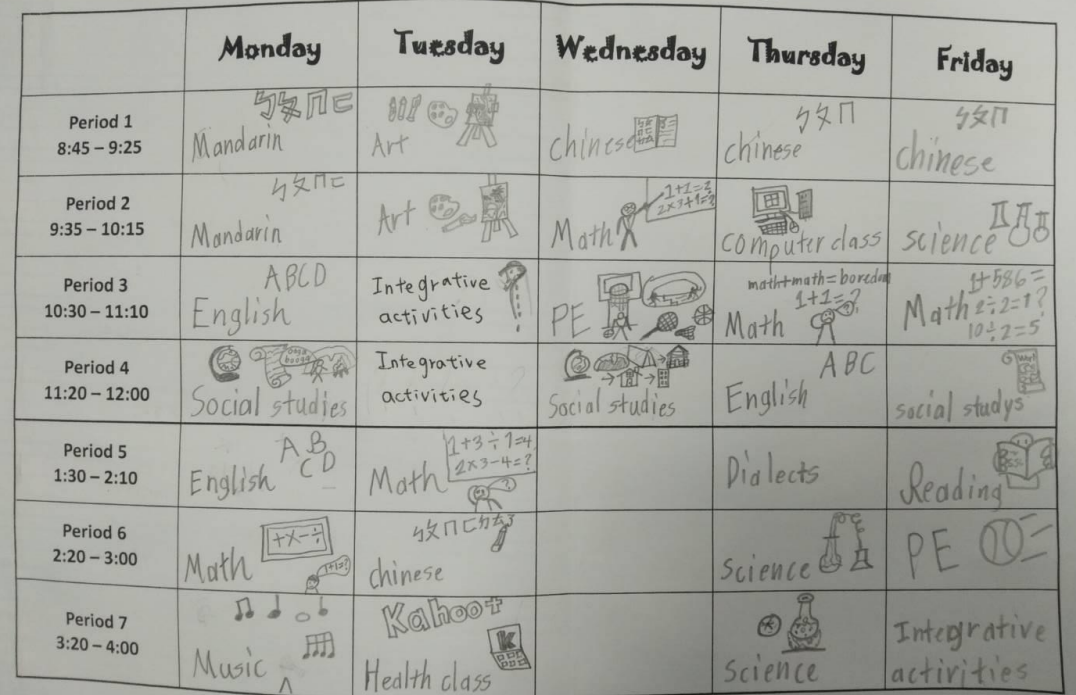 Monday Tuesday Wednesday Thursday Friday
Period 1
8:45 – 9:25
ㄅㄆㄇㄈ
Mandarin
Art
chinese
ㄅㄆㄇ
chinese
ㄅㄆㄇ
chinese
Period 2
9:35 – 10:15
ㄅㄆㄇㄈ
Mandarin
Art
1+1=?
2×3+1=?
Math
computer class
science
Period 3
10:30 – 11:10
ABCD
English
Integrative
activities
PE
math+math=boredom
1+1=?
Math
1+586=
Math 2÷2=1?
10÷2=5
Period 4
11:20 – 12:00
Social studies
Integrative
activities
Social studies
ABC
English
social studys
Period 5
1:30 – 2:10
A B
C D
English
1+3÷1=4
2×3−4=?
Math
Dialects
Reading
Period 6
2:20 – 3:00
+×−÷
1+1=?
Math
ㄅㄆㄇㄈ
chinese
science
PE
Period 7
3:20 – 4:00
Music
Kahoot
K
Health class
science
Integrative
activities